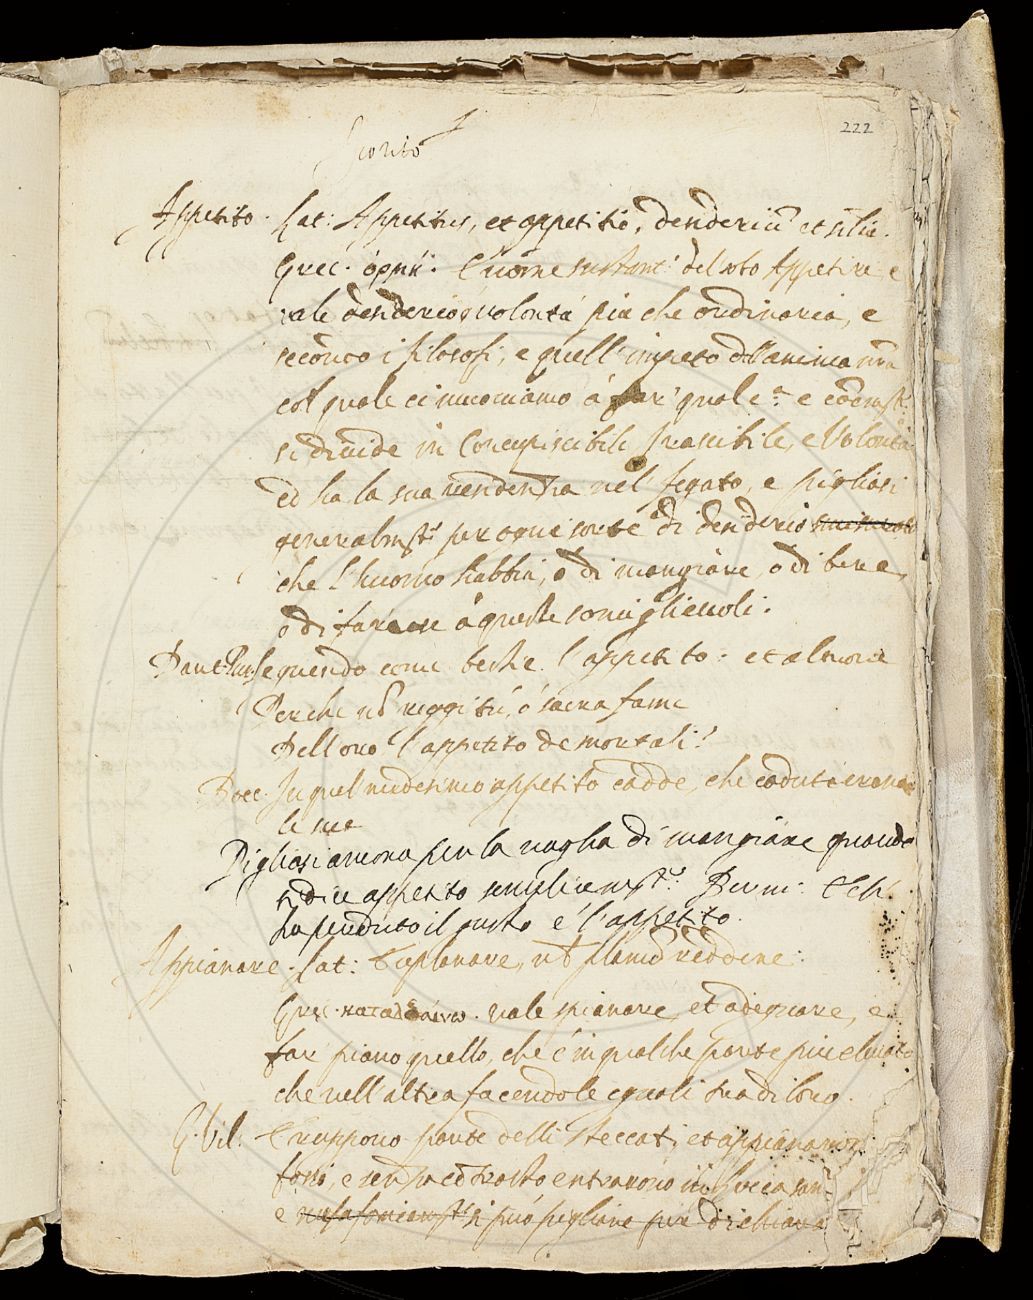 222
Appetito. Lat: Appetitus, et appetitio, desideriũ et silia.
Grec. ὁρμή. È nome sustant: del vbo Appetire e
vale desiderio, ò volontà più che ordinaria, e
secondo i filosofi, è quell'impeto dll'anima nra
col quale ci moviamo à far qual
si divide in Concupiscibile, Irascibile, e Volontà
ed ha la sua residenza nel fegato, e pigliasi
generalmte per ogni sorte di desiderio
che l'huomo habbia, ò di mangiare, ò di bere,
ò di fare à queste somiglievoli.
Dant: Pur. seguendo come bestie l'appetito: et altrove
Perche nõ reggi tù, ò sacra fame
Dell'oro l'appetito de mortali?
Bocc. In quel medesimo appetito cadde, che cadute erano
le
Pigliasi ancora per la voglia di mangiare quando
si dice appetito semplicemte. Berni:
ha perduto il gusto e l'appetito.
Appianare. Lat: Explanare, vł planũ reddere.
Grec. vale spianare, et adeguare, e
far piano quello, che è in qualche parte più elevato
che nell'altra facendole eguali tra di loro.
G. Vil: E ruppono parte delli steccati, et appianarono
fossi, e senza cõtrasto entrarono in Lucca
e si può pigliare per dichiara